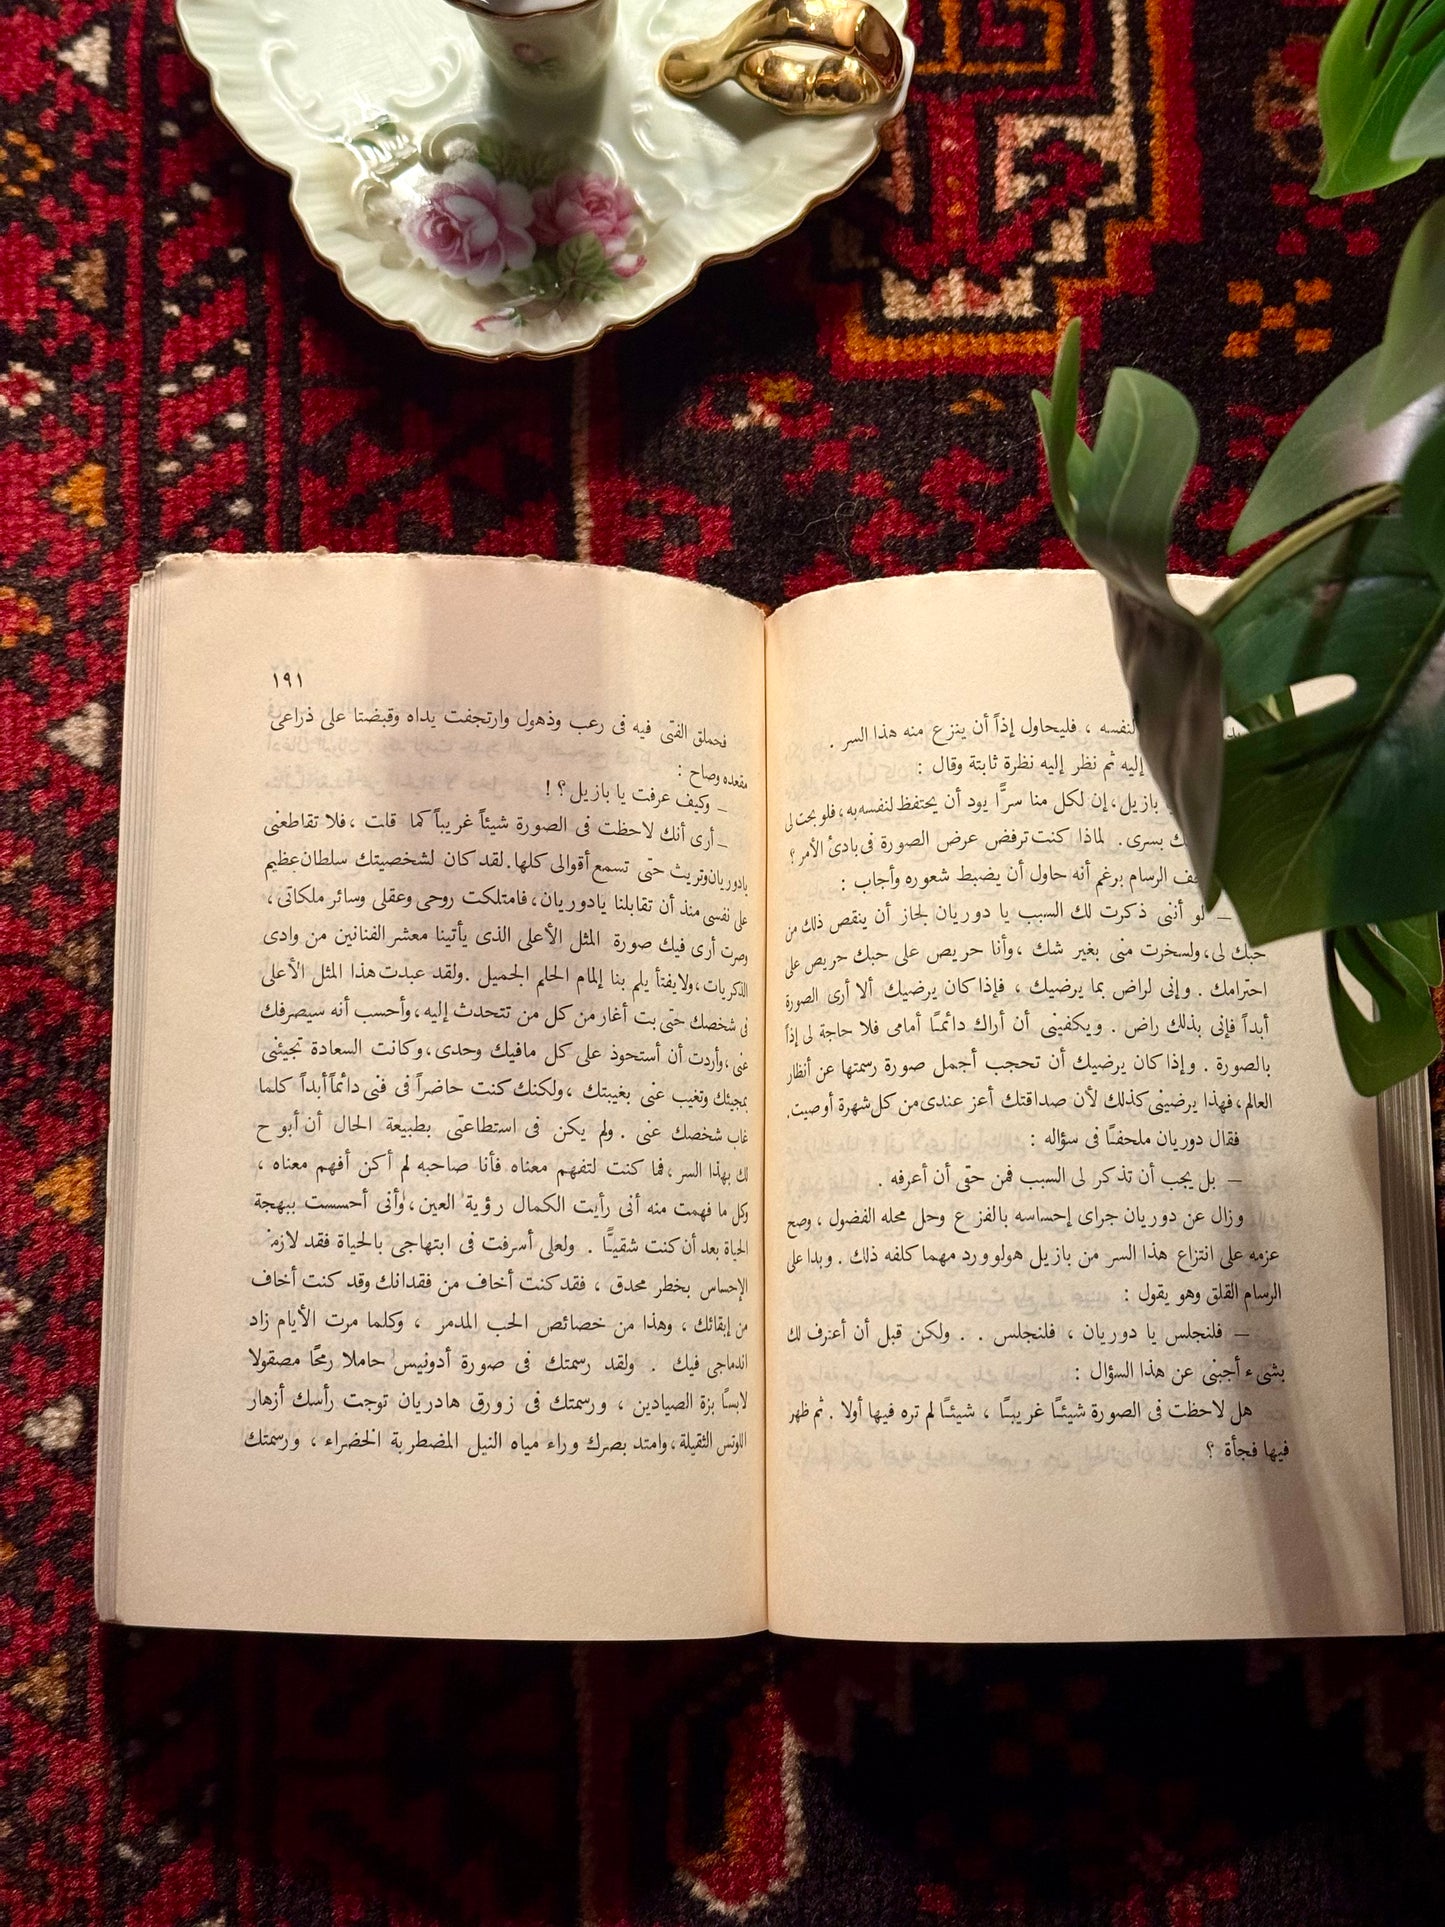 لنفسه ، فليحاول إذاً أن ينزع منه هذا السر .
إليه ثم نظر إليه نظرة ثابتة وقال :
بازيل ، إن لكل منا سرًّا يود أن يحتفظ لنفسه به ، فلو بحت لى
بسرى . لماذا كنت ترفض عرض الصورة فى بادئ الأمر ؟
الرسام برغم أنه حاول أن يضبط شعوره وأجاب :
ــ لو أننى ذكرت لك السبب يا دوريان لجاز أن ينقص ذلك من
حبك لى ، ولسخرت منى بغير شك ، وأنا حريص على حبك حريص على
احترامك . وإنى لراض بما يرضيك ، فإذا كان يرضيك ألا أرى الصورة
أبداً فإنى بذلك راض . ويكفينى أن أراك دائمًا أمامى فلا حاجة لى إذاً
بالصورة . وإذا كان يرضيك أن تحجب أجمل صورة رسمتها عن أنظار
العالم ، فهذا يرضينى كذلك لأن صداقتك أعز عندى من كل شهرة أو صيت .
فقال دوريان ملحفًا فى سؤاله :
ــ بل يجب أن تذكر لى السبب فمن حقى أن أعرفه .
وزال عن دوريان جراى إحساسه بالفزع وحل محله الفضول ، وصح
عزمه على انتزاع هذا السر من بازيل هولوورد مهما كلفه ذلك . وبدا على
الرسام القلق وهو يقول :
ــ فلنجلس يا دوريان ، فلنجلس . . ولكن قبل أن أعترف لك
بشىء أجبنى عن هذا السؤال :
هل لاحظت فى الصورة شيئًا غريبًا ، شيئًا لم تره فيها أولا . ثم ظهر
فيها فجأة ؟
١٩١
فحملق الفتى فيه فى رعب وذهول وارتجفت يداه وقبضتا على ذراعى
مقعده وصاح :
ــ وكيف عرفت يا بازيل ؟ !
ــ أرى أنك لاحظت فى الصورة شيئاً غريباً كما قلت ، فلا تقاطعنى
يادوريان وتريث حتى تسمع أقوالى كلها . لقد كان لشخصيتك سلطان عظيم
على نفسى منذ أن تقابلنا يادوريان ، فامتلكت روحى وعقلى وسائر ملكاتى ،
وصرت أرى فيك صورة المثل الأعلى الذى يأتينا معشر الفنانين من وادى
الذكريات ، ولا يفتأ يلم بنا إلمام الحلم الجميل . ولقد عبدت هذا المثل الأعلى
فى شخصك حتى بت أغار من كل من تتحدث إليه ، وأحسب أنه سيصرفك
عنى ، وأردت أن أستحوذ على كل مافيك وحدى ، وكانت السعادة تجيئنى
بمجيئك وتغيب عنى بغيبتك ، ولكنك كنت حاضراً فى فنى دائماً أبداً كلما
غاب شخصك عنى . ولم يكن فى استطاعتى بطبيعة الحال أن أبوح
لك بهذا السر ، فما كنت لتفهم معناه فأنا صاحبه لم أكن أفهم معناه ،
وكل ما فهمت منه أنى رأيت الكمال رؤية العين ، وأنى أحسست ببهجة
الحياة بعد أن كنت شقيًّا . ولعلى أسرفت فى ابتهاجى بالحياة فقد لازمنى
الإحساس بخطر محدق ، فقد كنت أخاف من فقدانك وقد كنت أخاف
من إبقائك ، وهذا من خصائص الحب المدمر ، وكلما مرت الأيام زاد
اندماجى فيك . ولقد رسمتك فى صورة أدونيس حاملا رمحًا مصقولا
لابسًا بزة الصيادين ، ورسمتك فى زورق هادريان توجت رأسك أزهار
اللوتس الثقيلة ، وامتد بصرك وراء مياه النيل المضطربة الخضراء ، ورسمتك